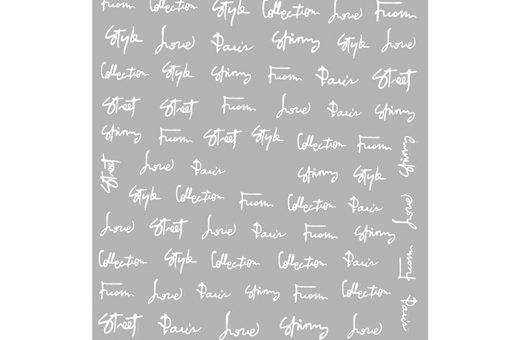 From Collection Style Collection Love From
Style Love Paris Style Love
Collection Style From Paris Street
Street Street From Love Paris
From Street Style Collection From
Street
Love Paris Style
Style Collection From Collection Paris
Love
Love Street Love Paris From
From
Collection Style Collection Collection Paris
From Love Paris From Collection
Paris
Street Paris Love Love